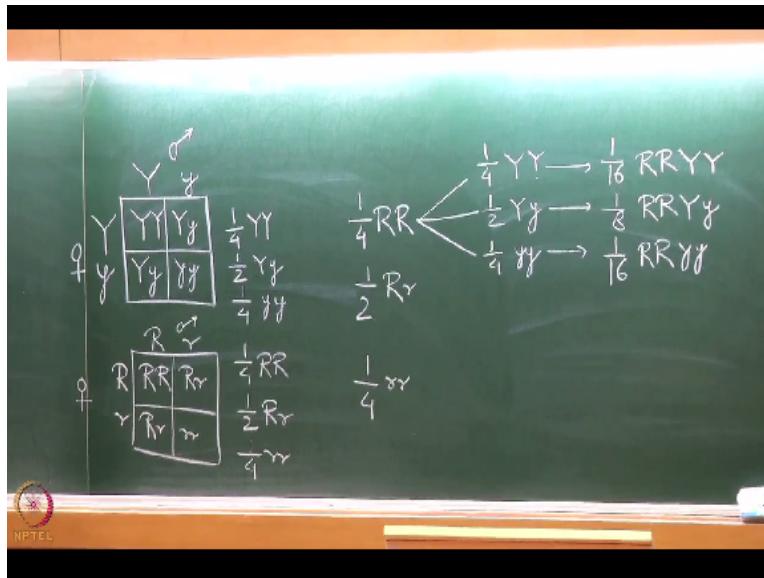 Y ♂ y
Y YY Yy
♀ y Yy yy
1/4 YY
1/2 Yy
1/4 yy
R ♂ r
R RR Rr
♀ r Rr rr
1/4 RR
1/2 Rr
1/4 rr
1/4 RR
1/4 YY → 1/16 RRYY
1/2 Yy → 1/8 RRYy
1/4 yy → 1/16 RRyy
1/2 Rr
1/4 rr
NPTEL